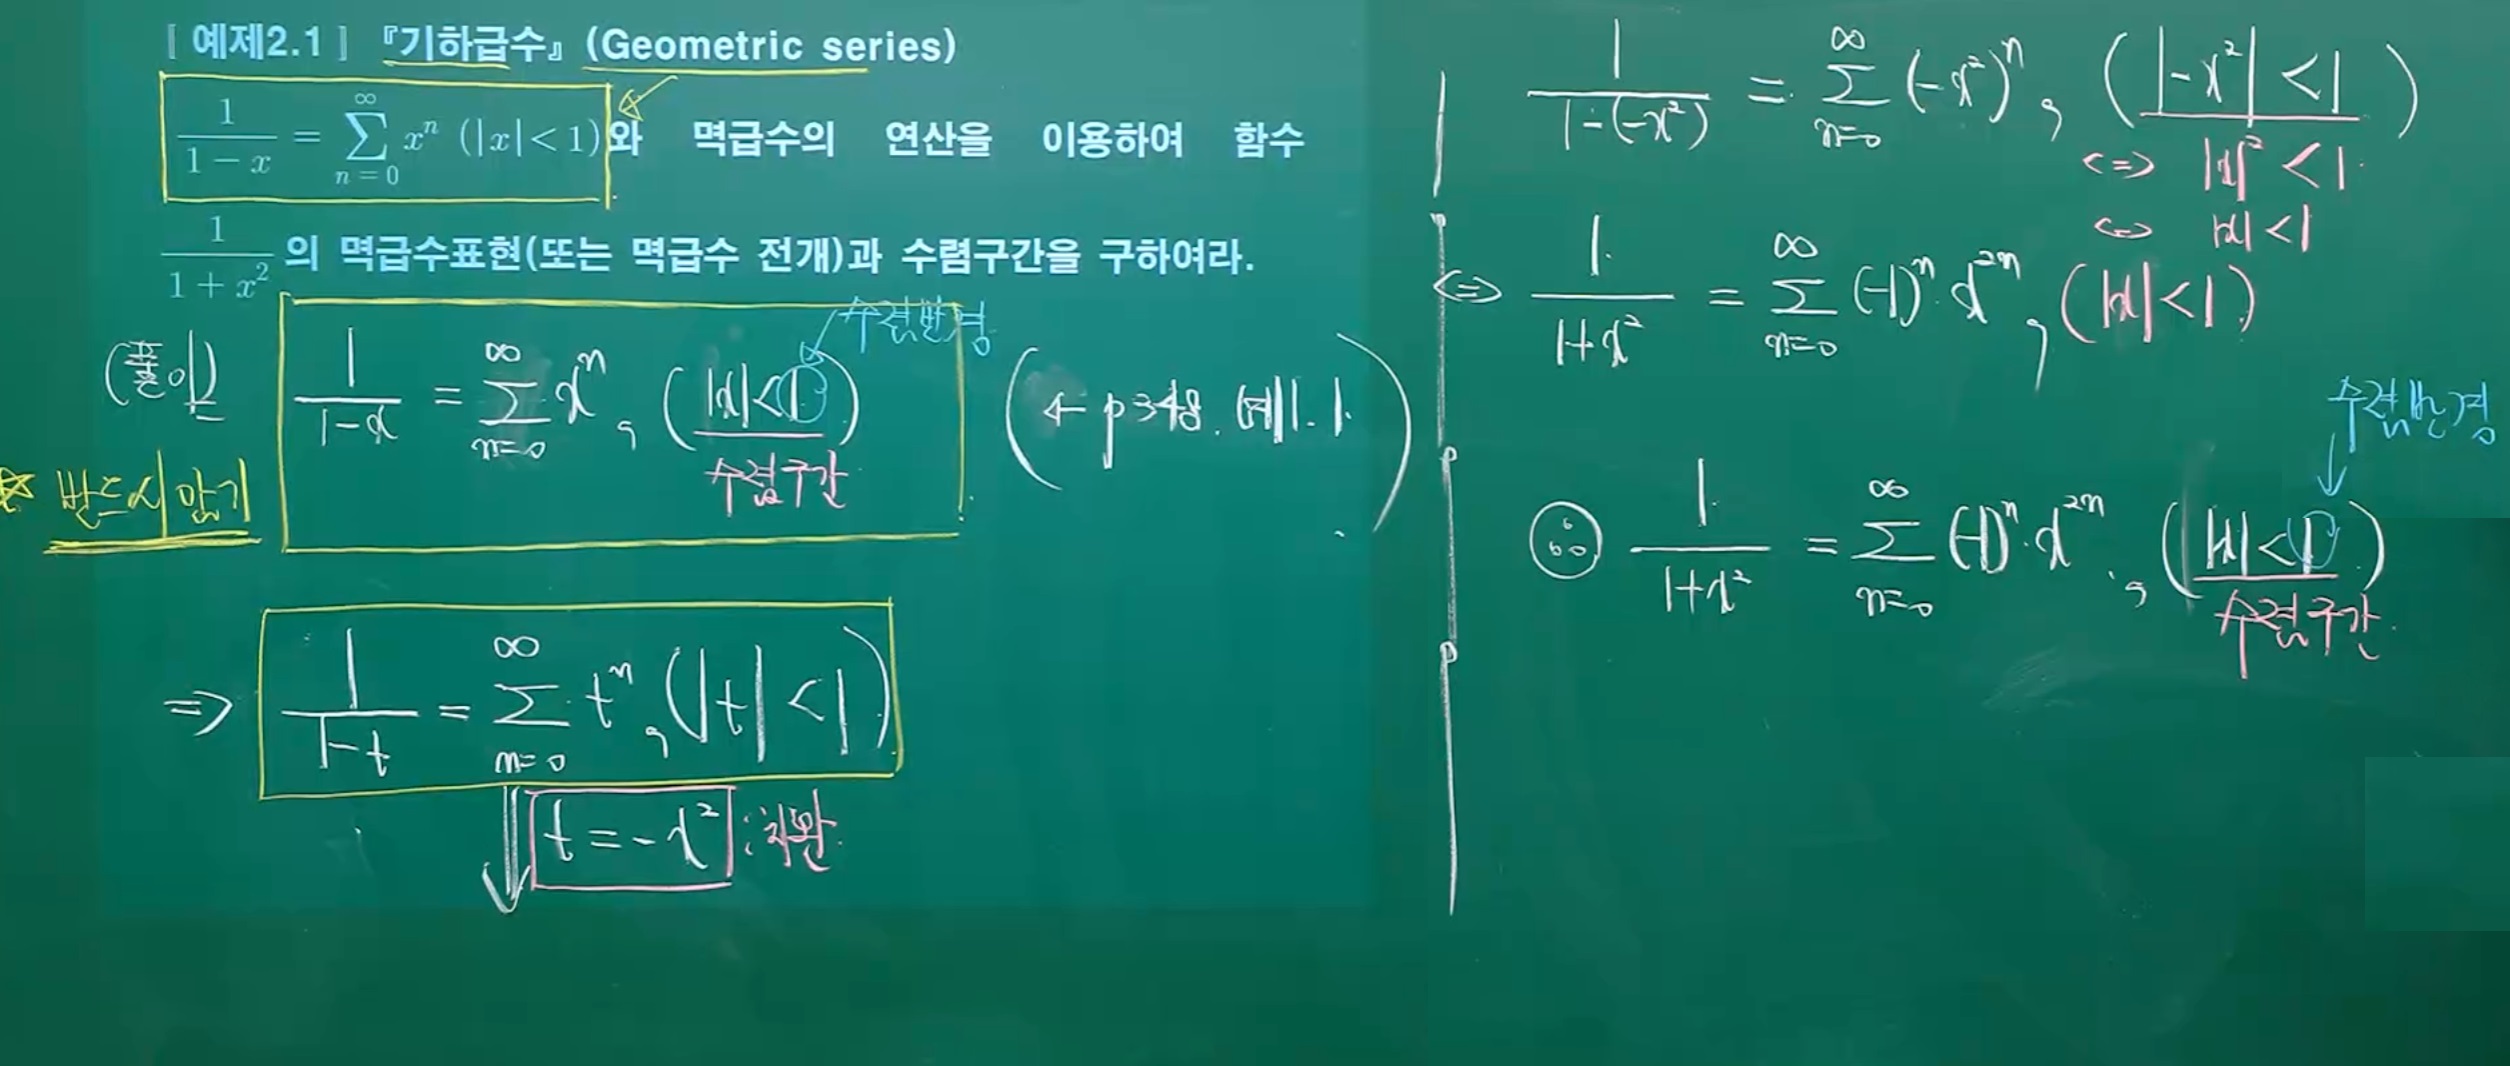 [ 예제2.1 ] 『기하급수』 (Geometric series)
1/(1 − x) = ∑_{n = 0}^{∞} xⁿ (|x| < 1) 와 멱급수의 연산을 이용하여 함수
1/(1 + x²) 의 멱급수표현(또는 멱급수 전개)과 수렴구간을 구하여라.
수렴반경
(풀이) 1/(1-x) = ∑_{n=0}^{∞} xⁿ, (|x|<1) (← p348. 예1.1.)
수렴구간
☆ 반드시 암기
⇒ 1/(1-t) = ∑_{n=0}^{∞} tⁿ, (|t|<1)
t = -x² : 치환.
1/(1-(-x²)) = ∑_{n=0}^{∞} (-x²)ⁿ, (|-x²|<1)
⇔ |x|²<1.
⇔ |x|<1
⇔ 1/(1+x²) = ∑_{n=0}^{∞} (-1)ⁿ·x²ⁿ, (|x|<1)
수렴반경
∴ 1/(1+x²) = ∑_{n=0}^{∞} (-1)ⁿ·x²ⁿ, (|x|<1)
수렴구간.